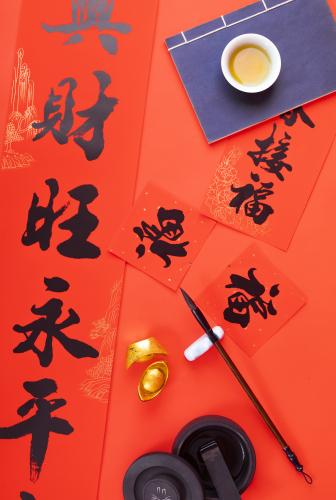 興財旺永平
接福
福
福